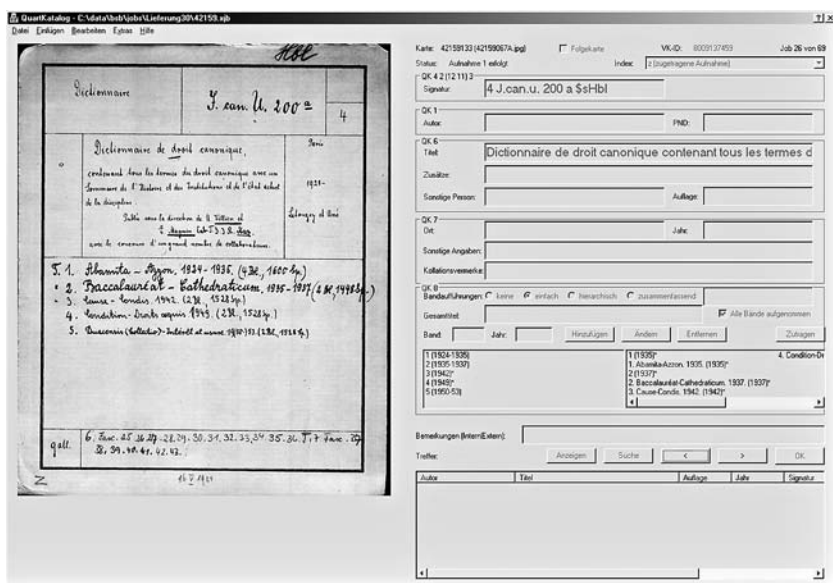 QuartKatalog - C:\data\bsb\jobs\Lieferung30\42159.xjb
Datei Einfügen Bearbeiten Extras Hilfe
Hbl
Dictionnaire
J. can. U. 200 a
4
Dictionnaire de droit canonique,
contenant tous les termes du droit canonique avec un
Sommaire de l'Histoire et des Institutions et de l'état actuel
de la discipline.
Publié sous la direction de
avec le concours d'un grand nombre de collaborateurs.
Paris
1924-
Letouzey et Ané
T. 1. Abamita - Azzon. 1924-1935. (4 Bl., 1600 Sp.)
2. Baccalauréat - Cathedraticum. 1935-1937
3. Cause - Condes. 1942. (2 Bl., 1528 Sp.)
4. Condition - Droits acquis 1949. (2 Bl., 1528 Sp.)
5. Duacensis (Collectio) - Intérêt et usure. 1950-53. (2 Bl., 1528 Sp.)
gall.
6. Fasc. 25. 26. 27.-28. 29. 30. 31. 32. 33. 34. 35. 36. T. 7 Fasc. 37
38, 39. 40. 41. 42. 43.
Z
Karte: 42159133 (42159067A.jpg) Folgekarte VK-ID: 8009137459 Job 26 von 69
Status: Aufnahme 1 erfolgt Index: z (zugetragene Aufnahme)
QK 4 2 (12 11) 3
Signatur: 4 J.can.u. 200 a $sHbl
QK 1
Autor: PND:
QK 6
Titel: Dictionnaire de droit canonique contenant tous les termes d
Zusätze:
Sonstige Person: Auflage:
QK 7
Ort: Jahr:
Sonstige Angaben:
Kollationsvermerke:
QK 8
Bandaufführungen: keine einfach hierarchisch zusammenfassend
Gesamttitel: Alle Bände aufgenommen
Band: Jahr: Hinzufügen Ändern Entfernen Zutragen
1 (1924-1935)
2 (1935-1937)
3 (1942)*
4 (1949)*
5 (1950-53)
1 (1935)* 4. Condition-Dr
1. Abamita-Azzon. 1935. (1935)*
2 (1937)*
2. Baccalauréat-Cathedraticum. 1937. (1937)*
3. Cause-Conde. 1942. (1942)*
Bemerkungen (Intern/Extern):
Treffer: Anzeigen Suche < > OK
Autor Titel Auflage Jahr Signatur